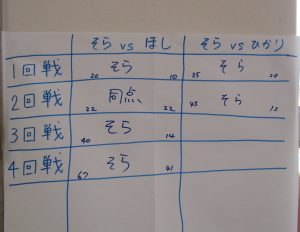 そら vs ほし そら vs ひかり
1回戦 20 そら 10 35 そら 20
2回戦 22 同点 22 45 そら 13
3回戦 40 そら 14
4回戦 67 そら 41